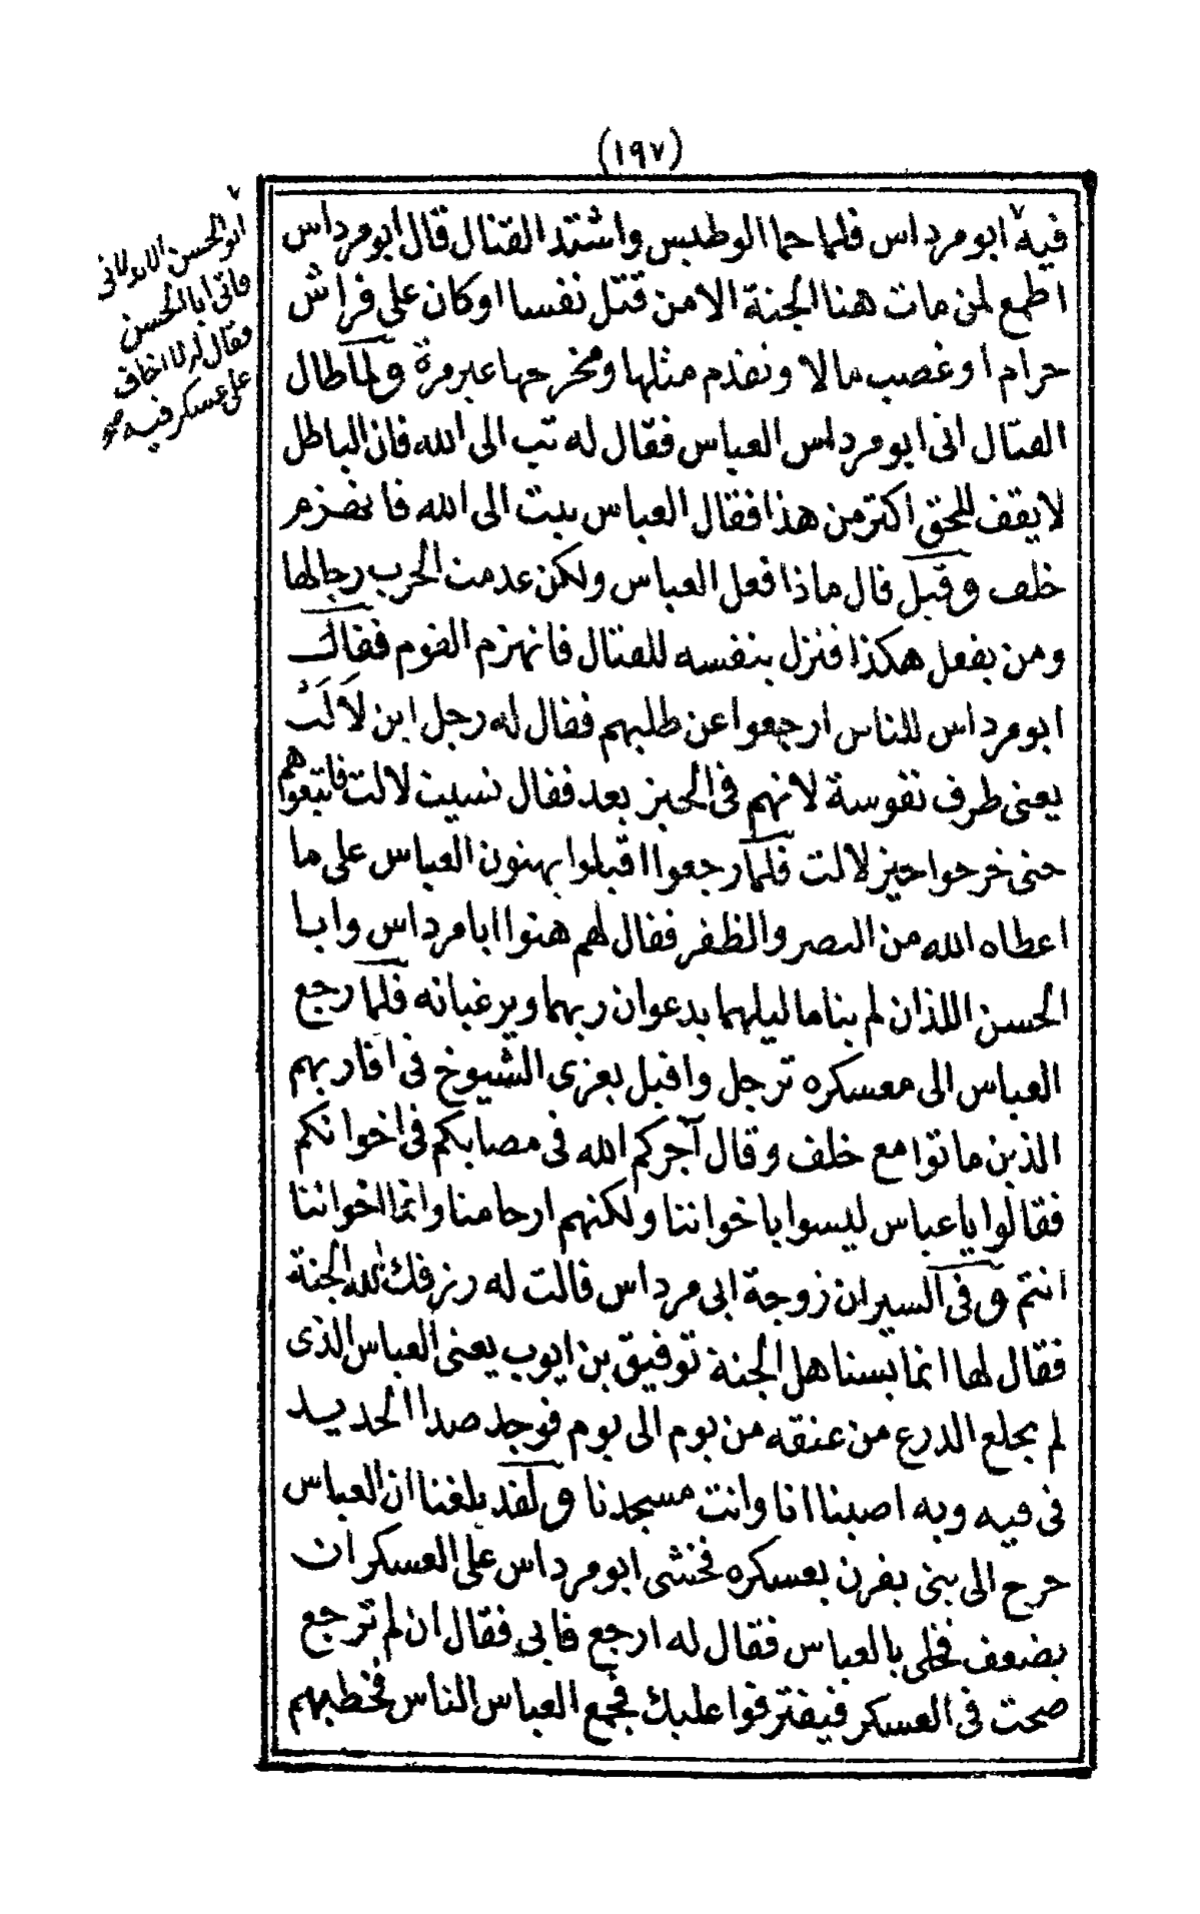 (١٩٧)
فيه ابو مرداس فلما حما الوطيس واشتد القتال قال ابو مرداس
اطمع لمن مات هنا الجنة الا من قتل نفسا او كان على فراش
حرام او غصب مالا وتقدم مثلها ومخرجها غير مرة ولما طال
القتال اتى ابو مرداس العباس فقال له تب الى الله فان الباطل
لا يقف للحق اكثر من هذا فقال العباس تبت الى الله فانهزم
خلف وقيل قال ماذا فعل العباس ولكن عدمت الحرب رجالها
ومن يفعل هكذا فنزل بنفسه للقتال فانهزم القوم فقال
ابو مرداس للناس ارجعوا عن طلبهم فقال له رجل اين لَالَتْ
يعنى طرف نفوسة لانهم فى الحيز بعد فقال نسيت لالت فاتبعوهم
حتى خرجوا حيز لالت فلما رجعوا اقبلوا يهنون العباس على ما
اعطاه الله من النصر والظفر فقال لهم هنوا ابا مرداس وابا
الحسن اللذان لم يناما ليلهما يدعوان ربهما ويرغبانه فلما رجع
العباس الى معسكره ترجل واقبل يعزى الشيوخ فى اقاربهم
الذين ماتوا مع خلف وقال آجركم الله فى مصابكم فى اخوانكم
فقالوا يا عباس ليسوا باخواننا ولكنهم ارحامنا وانما اخواننا
انتم وفى السير ان زوجة ابى مرداس قالت له رزقك الله الجنة
فقال لها انما يسنا هل الجنة توفيق بن ايوب يعنى العباس الذى
لم يخلع الدرع من عنقه من يوم الى يوم فوجد صدا الحديد
فى فيه وبه اصبنا انا وانت مسجدنا ولقد بلغنا ان العباس
خرج الى بنى يفرن بعسكره فخشى ابو مرداس على العسكر ان
يضعف فخلى بالعباس فقال له ارجع فابى فقال ان لم ترجع
صحت فى العسكر فيفترقوا عليك فجمع العباس الناس فخطبهم
ابو الحسن الابدلانى
فاتى ابا الحسن
فقال له لا اخاف
على عسكر فيه صح